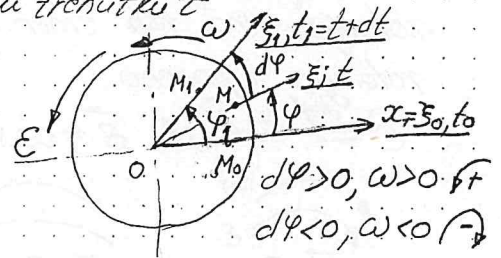 u trenutku t
ω
ξ₁, t₁=t+dt
dφ
M₁
M
ξ; t
φ₁
φ
x≡ξ₀, t₀
ε
O
M₀
dφ>0, ω>0 +
dφ<0, ω<0 -